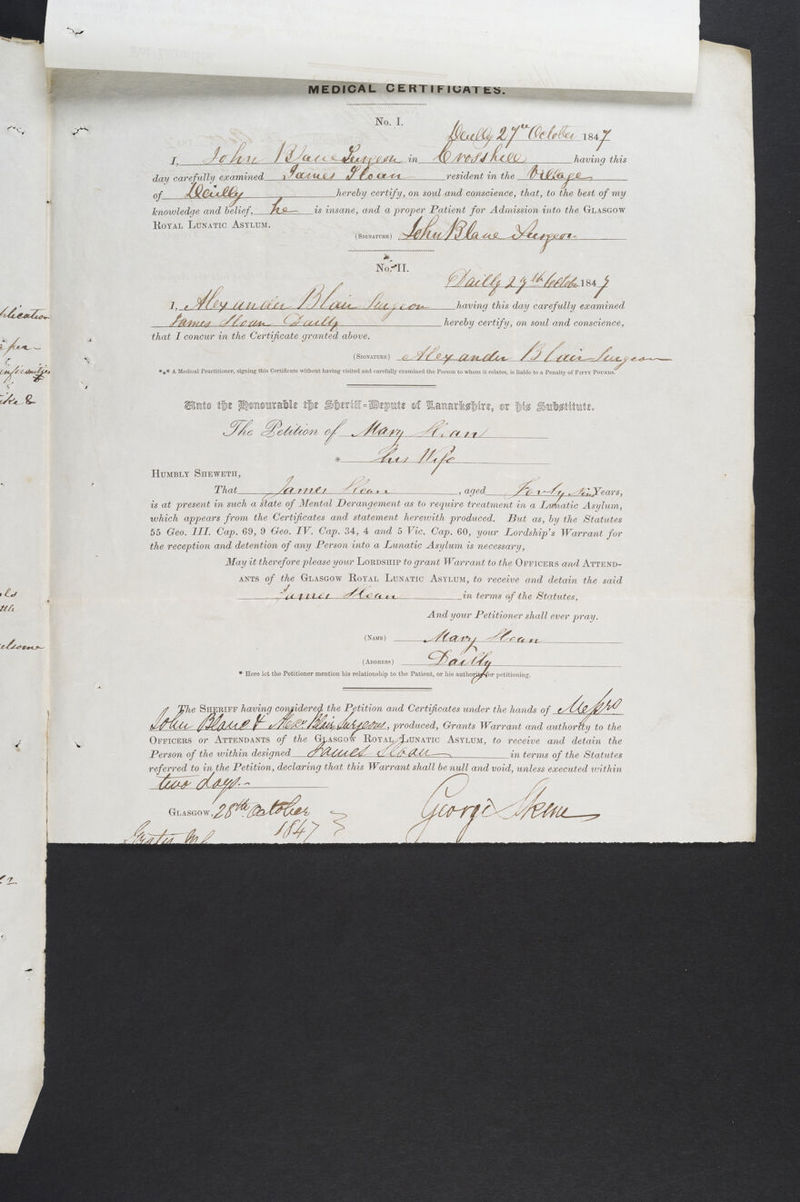 MEDICAL CERTIFICATES.
No. I.
Dailly 27th October 1847
I, John Blane Surgeon in Crosshill having this
day carefully examined James Sloan resident in the Village
of Dailly hereby certify, on soul and conscience, that, to the best of my
knowledge and belief, he is insane, and a proper Patient for Admission into the GLASGOW
ROYAL LUNATIC ASYLUM.
(SIGNATURE) John Blane Surgeon
No. II.
Dailly 27th October 1847
I, Alexander Blair Surgeon having this day carefully examined
James Sloan Dailly hereby certify, on soul and conscience,
that I concur in the Certificate granted above.
(SIGNATURE) Alexander Blair Surgeon
*** A Medical Practitioner, signing this Certificate without having visited and carefully examined the Person to whom it relates, is liable to a Penalty of FIFTY POUNDS.
Unto the Honourable the Sheriff-Depute of Lanarkshire, or his Substitute.
The Petition of Mary Sloan
* his Wife
HUMBLY SHEWETH,
That James Sloan, aged Forty Nine Years,
is at present in such a state of Mental Derangement as to require treatment in a Lunatic Asylum,
which appears from the Certificates and statement herewith produced. But as, by the Statutes
55 Geo. III. Cap. 69, 9 Geo. IV. Cap. 34, 4 and 5 Vic. Cap. 60, your Lordship's Warrant for
the reception and detention of any Person into a Lunatic Asylum is necessary,
May it therefore please your LORDSHIP to grant Warrant to the OFFICERS and ATTEND-
ANTS of the GLASGOW ROYAL LUNATIC ASYLUM, to receive and detain the said
James Sloan in terms of the Statutes.
And your Petitioner shall ever pray.
(NAME) Mary Sloan
(ADDRESS) Dailly
* Here let the Petitioner mention his relationship to the Patient, or his authority for petitioning.
The SHERIFF having considered the Petition and Certificates under the hands of Messrs
John Blane & Alexr Blair Surgeons, produced, Grants Warrant and authority to the
OFFICERS or ATTENDANTS of the GLASGOW ROYAL LUNATIC ASYLUM, to receive and detain the
Person of the within designed James Sloan in terms of the Statutes
referred to in the Petition, declaring that this Warrant shall be null and void, unless executed within
two days.
GLASGOW, 28th October
1847
George Skene